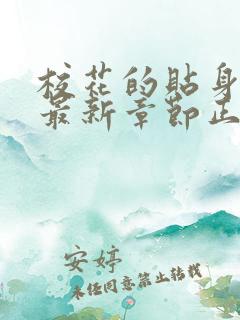 校花的贴身
最新章节正
安婷
未经同意禁止转载